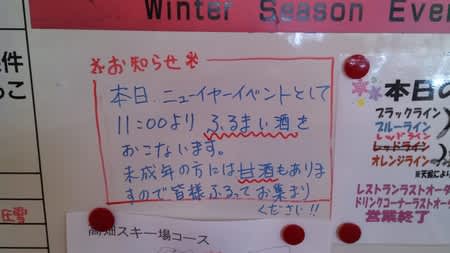 Winter Season Eve
*お知らせ*
本日、ニューイヤーイベントとして
11:00より ふるまい酒を
おこないます。
未成年の方には甘酒もありま
すので皆様ふるってお集まり
ください!!
高畑スキー場コース
本日の
ブラックライン
ブルーライン
レッドライン
レッドライン
オレンジライン
レストランラストオーダ
ドリンクコーナーラストオーダ
営業終了
件